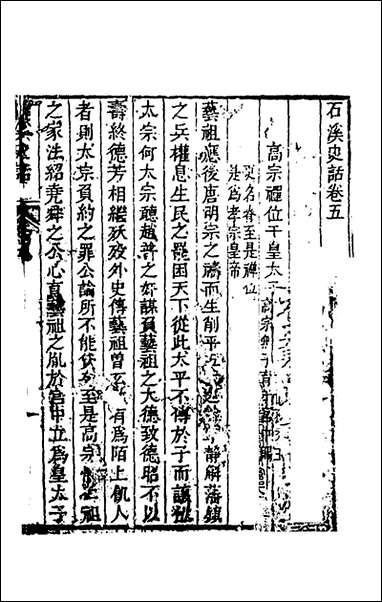 石溪史話卷五
高宗禪位于皇太子
更名眘至是禪位
是為孝宗皇帝
藝祖應後唐明宗之禱而生削平 靜解藩鎮
之兵權息生民之罷困天下從此太平不傳於子而讓
太宗何太宗聽趙普之奸謀負藝祖之大德致德昭不以
壽終德芳相繼殀歿外史傳藝祖曾孫 有為陌上飢人
者則太宗負約之罪公論所不能伏 至是高宗 祖
之家法紹堯舜之公心育藝祖之胤於宮中立為皇太子